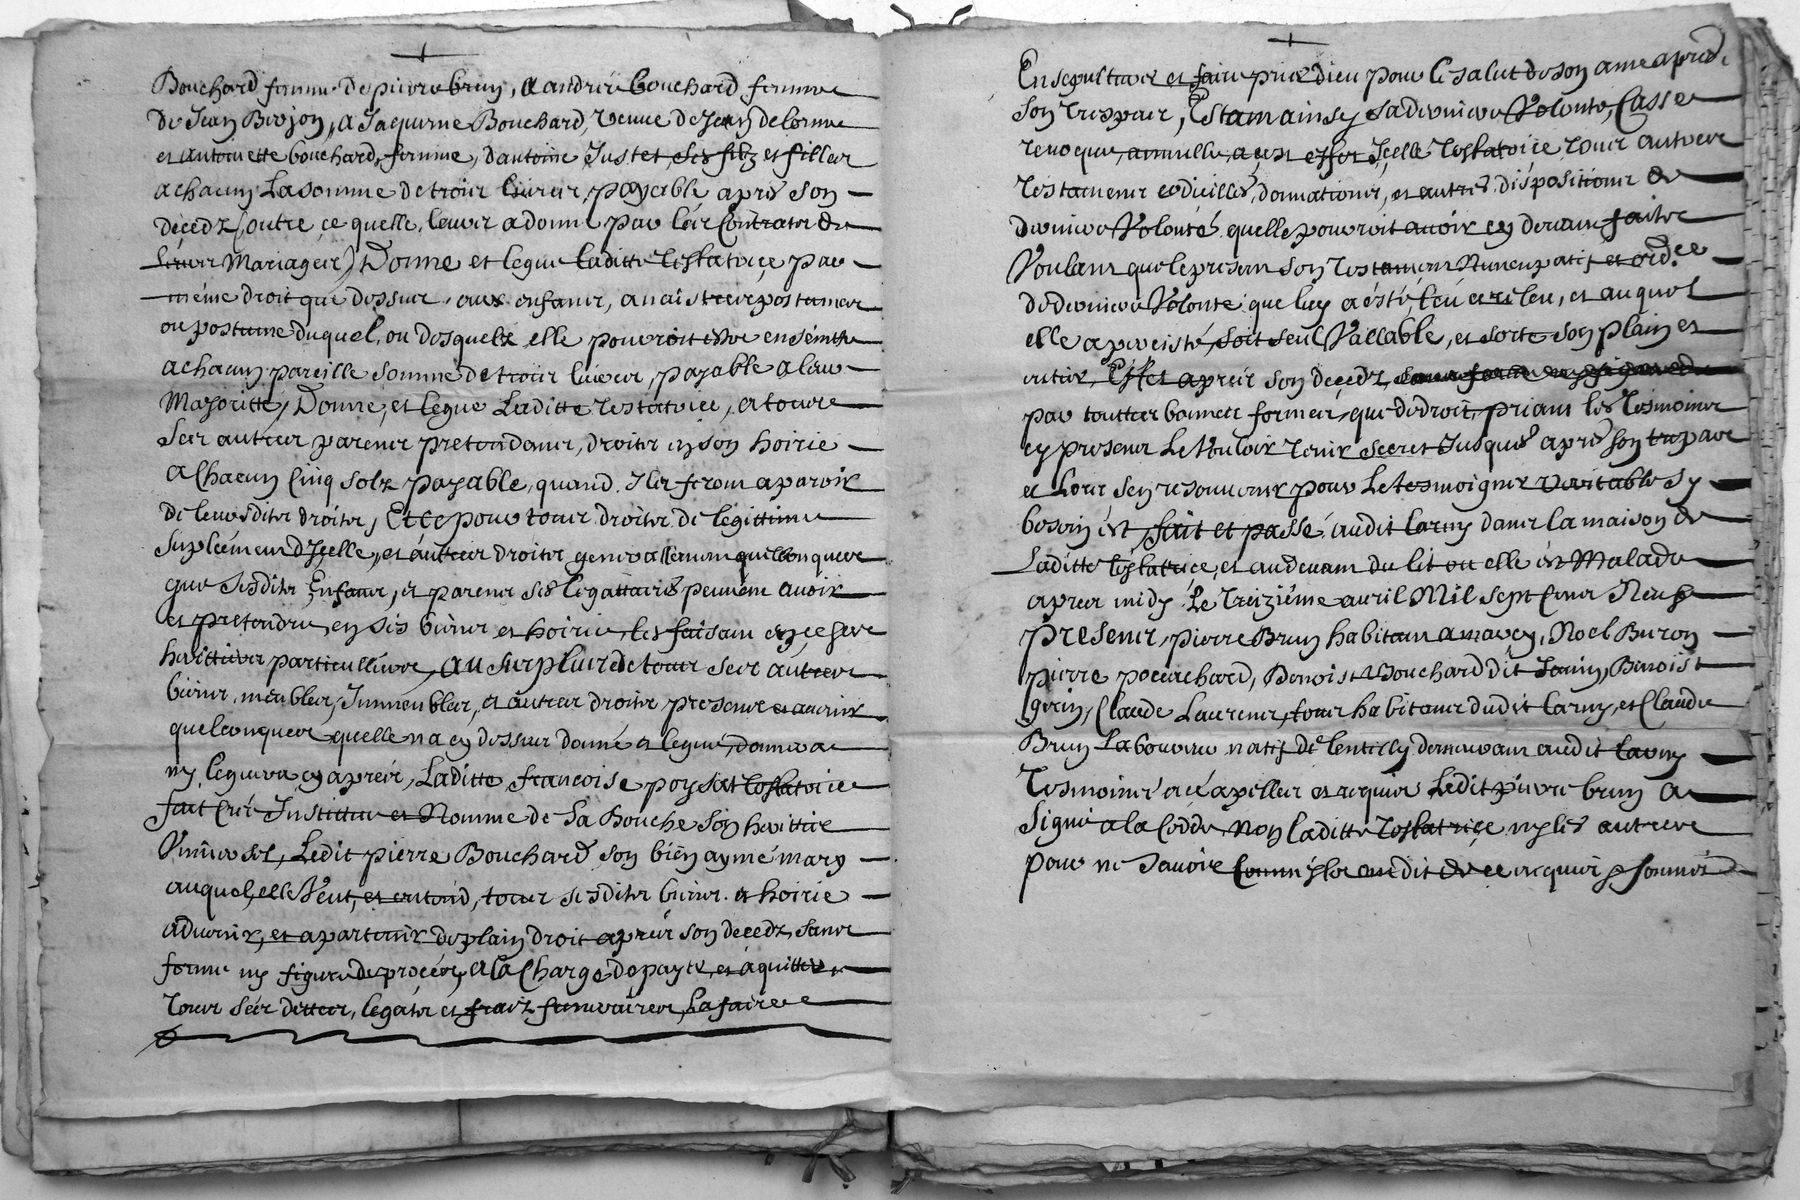 Bouchard femme de pierre brun, a andrée bouchard femme
de Jean Brojon, a Jaqueme Bouchard, vefve de Jean delorme
et antoinette bouchard, femme, dantoine Juste, ses filz et filles
a chacun La somme de trois livres, payable apres son
décedz (outre ce quelle, leurs a donné par les Contrats de
leurs Mariages) Donne et legue laditte testatrice par
méme droit que dessus, aux enfans, a naistre postumes
ou postume duquel, ou desquels elle pourroit estre enseinte
a chacun pareille somme de trois livres, payable a leur
Majoritté, Donne, et legue Laditte testatrice, et toutz
Ses autres parens pretendans, droits en son hoirie
a Chacun Cinq solz payable, quand Ils feront aparoir
de leursdits droits, Et ce pour tous droits de légittime
supleément d'Icelle, et autres droits generallement quelconques
que sesdits Enfans, et parens ses légattaires peuvent avoir
et pretendre, en ses biens et hoirie, les faisant en ce ses
herittiers particulliers, au surplus de tous ses autres
biens, meubles, Immeubles, et autres droits presens et avenir
quelconques quelle na cy dessus donné et legué, donnera
ny leguera cy apres, Laditte francoise poyset testatrice
fait Créé Institue et Nomme de Sa Bouche Son herittier
Universel, Ledit pierre Bouchard son bien aymé mary
auquel, elle Veut, et entend, tous sesdits biens et hoirie
advenir, et apartenir de plain droit apres son decedz, sans
forme ny figure de procés, a la Charge de payer, et aquitter
tous ses dettes, legats et fraiz funeraires, La faire
Ensepulturer et faire prier dieu pour le salut de son ame apres
son trespas, Estamainsy sa derniere Volonté, Casse
revoque, annulle, a cest effet Icelle testatrice tous autres
testamens codicilles, donnations, et autres dispositions de
derniere Volonté quelle pourroit avoir cy devant faite
Voulant que le present son testament Nuncupatif et ord.ce
de derniere Volonté que luy a ésté leu et releu, et auquel
elle a persisté, soit seul Vallable, et sorte son plain et
entier, Effet apres son decedz,
par touttes bonnes formes, que de droit, priant les tesmoins
cy presens Le Vouloir tenir secret Jusques apres son trepas
et Lors sen resouvenir pour Le tesmoigner veritable sy
besoin est, fait et passé audit Larny dans la maison de
Laditte testatrice, et au devant du lit ou elle est Malade
apres midy Le treiziéme avril Mil sept Cens Neuf
Presens, pierre Brun habitant a marcy, Noel Buron
pierre pocachard, Benoist Bouchard dit Janin, Benoist
gorin, Claude Laurens, tous habitans dudit Larny, et Claude
Brun Laboureur natif de lentilly demeurant audit Larny
tesmoins a cé apelles et requis Ledit pierre brun a
Signé a la Cedde, Non laditte testatrice ny les autres
pour ne Savoir Comme ils ont dit de ce enquis & sommés